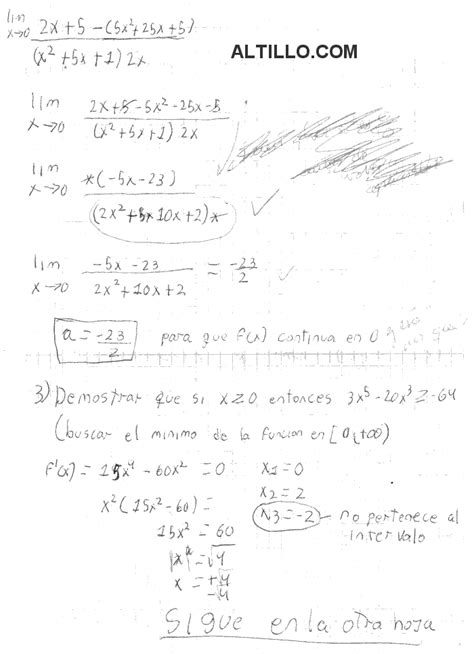 lim x→0 2x+5-(5x²+25x+5) / (x²+5x+1) 2x
ALTILLO.COM
lim x→0 2x+5-5x²-25x-5 / (x²+5x+1) 2x
lim x→0 x(-5x-23) / (2x²+10x+2)x
lim x→0 -5x-23 / 2x²+10x+2 = -23/2
a = -23/2 para que f(x) continua en 0
3) Demostrar que si x≥0 entonces 3x⁵-20x³≥-64
(buscar el minimo de la funcion en [0,+∞)
f'(x) = 15x⁴-60x² = 0 x1=0
x²(15x²-60) = x2=2
15x² = 60 x3=-2 - no pertenece al intervalo
|x| = √4
x = +4
-4
Sigue en la otra hoja